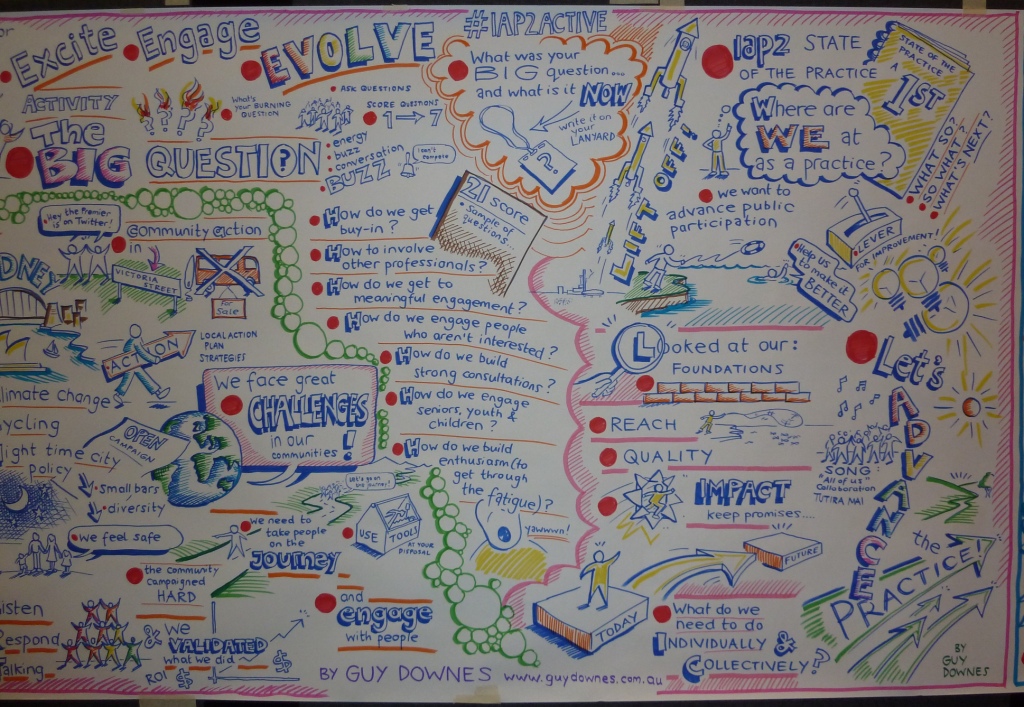 or
Excite Engage EVOLVE
#IAP2ACTIVE
ACTIVITY
What's
YOUR BURNING
QUESTION
ASK QUESTIONS
SCORE QUESTIONS
1 → 7
The
BIG QUESTION
energy
buzz
conversation
BUZZ
I can't compete
What was your
BIG question....
and what is it NOW
write it on
your
LANYARD
?
21 score
Sample of
questions...
How do we get
buy-in?
How to involve
other professionals?
How do we get to
meaningful engagement?
How do we engage people
who aren't interested?
How do we build
strong consultations?
How do we engage
seniors, youth &
children?
How do we build
enthusiasm (to
get through
the fatigue)?
yawwwn!
Hey the Premier
is on Twitter!
Community action
in
VICTORIA
STREET
For
Sale
DNEY
ACTION
LOCAL ACTION
PLAN
STRATEGIES
limate change
ycling
ight time city
policy
OPEN
CAMPAIGN
We face great
CHALLENGES
in our
communities!
Small bars
diversity
we feel safe
the community
campaigned
HARD
isten
Respond
Talking
& we
VALIDATED
what we did
ROI $
$
we need to
take people
on the
JOURNEY
Let's go on
the journey!
USE
TOOLS
AT YOUR
DISPOSAL
and
engage
with people
BY GUY DOWNES www.guydownes.com.au
LIFT OFF!
Iap2 STATE
OF THE PRACTICE
STATE OF THE
PRACTICE
1ST
WHAT?
SO WHAT?
WHAT'S NEXT?
Where are
WE at
as a practice?
we want to
advance public
participation
LEVER
FOR IMPROVEMENT!
Help us
to make it
BETTER
Looked at our:
FOUNDATIONS
REACH
QUALITY
IMPACT
keep promises....
SONG:
"All of us"
Collaboration
TUTIRA MAI
Let's
ADVANCE
the
PRACTICE!
TODAY
FUTURE
What do we
need to do
INDIVIDUALLY &
COLLECTIVELY?
BY
GUY
DOWNES